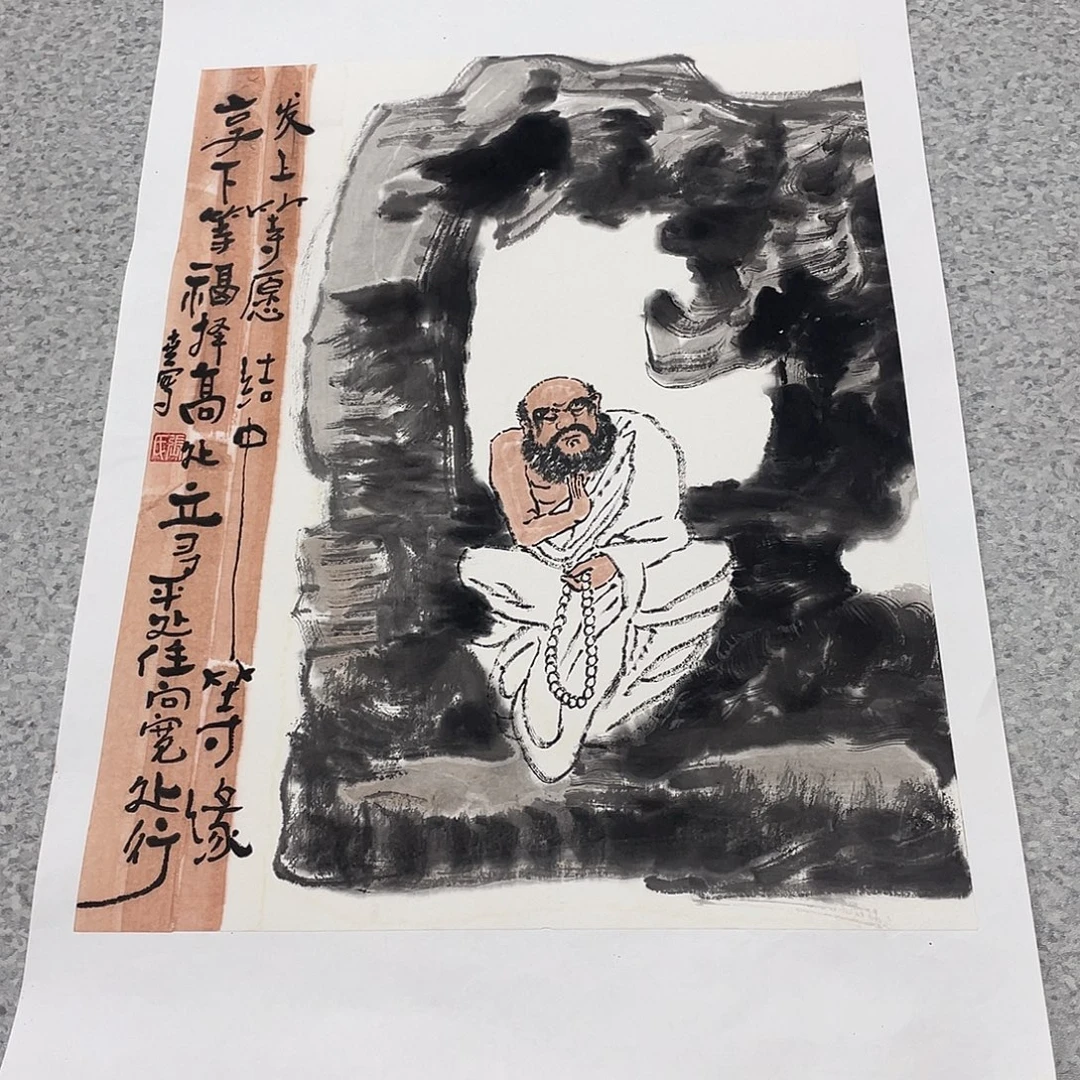 发上等愿结中等缘
享下等福择高处立寻平处住向宽处行
写